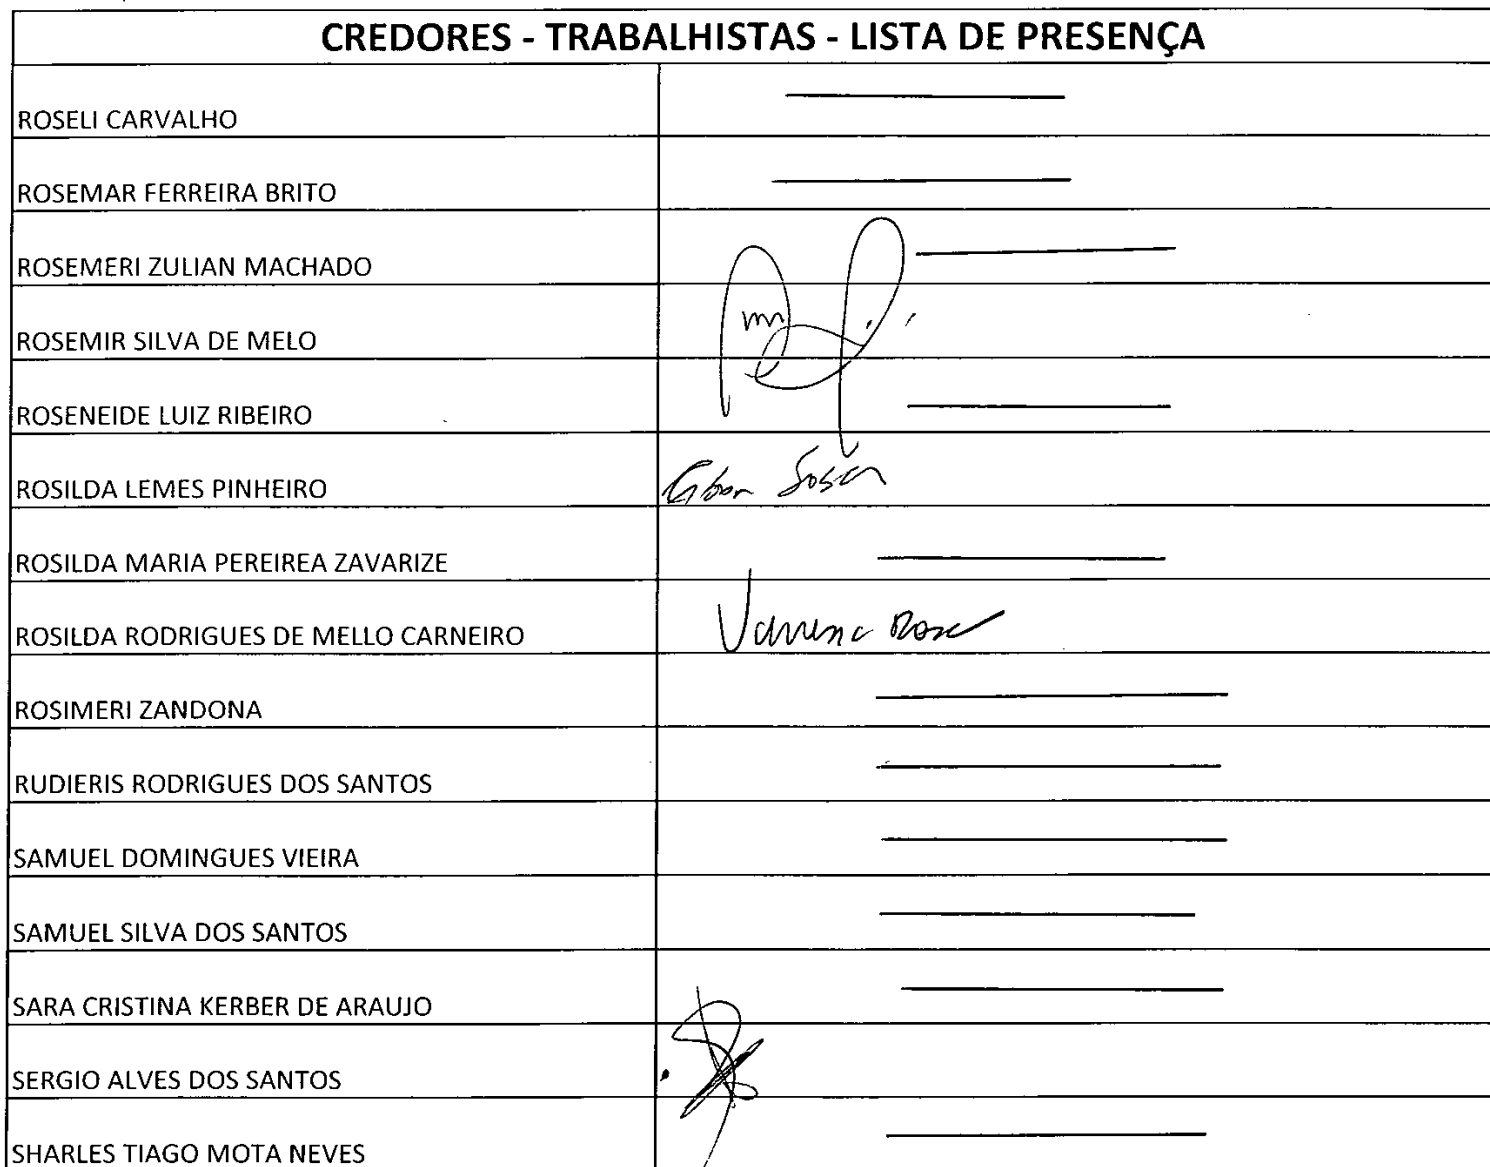 CREDORES - TRABALHISTAS - LISTA DE PRESENÇA
ROSELI CARVALHO
ROSEMAR FERREIRA BRITO
ROSEMERI ZULIAN MACHADO
ROSEMIR SILVA DE MELO
ROSENEIDE LUIZ RIBEIRO
ROSILDA LEMES PINHEIRO
ROSILDA MARIA PEREIREA ZAVARIZE
ROSILDA RODRIGUES DE MELLO CARNEIRO
ROSIMERI ZANDONA
RUDIERIS RODRIGUES DOS SANTOS
SAMUEL DOMINGUES VIEIRA
SAMUEL SILVA DOS SANTOS
SARA CRISTINA KERBER DE ARAUJO
SERGIO ALVES DOS SANTOS
SHARLES TIAGO MOTA NEVES